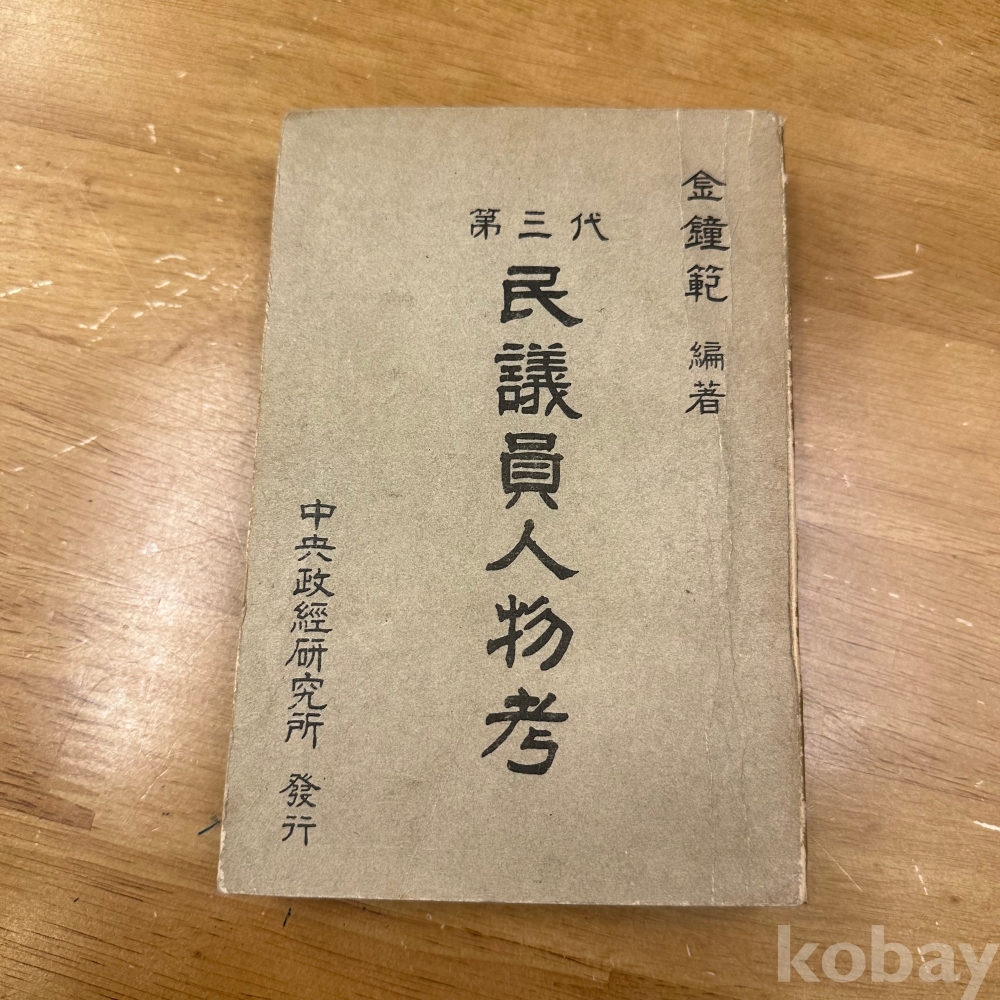 金鐘範 編著
第三代
民議員人物考
中央政經研究所 發行
kobay